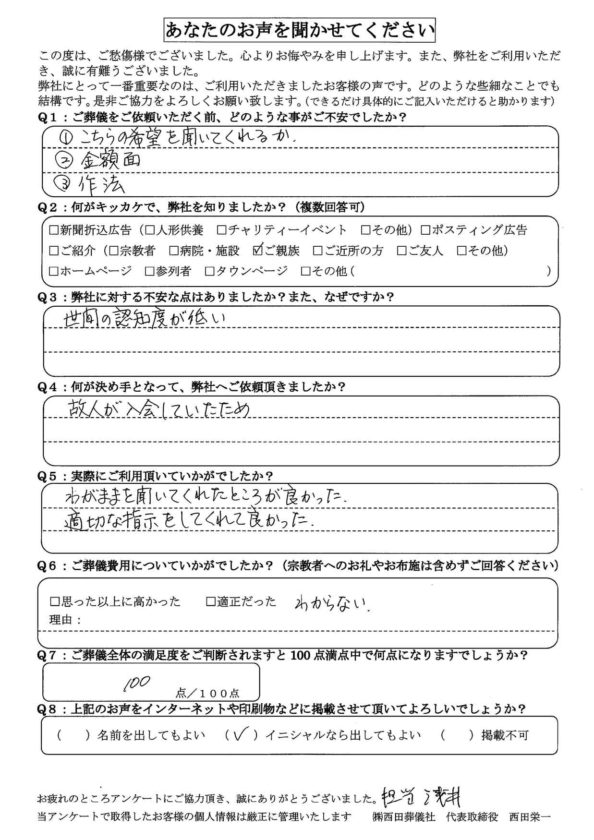 あなたのお声を聞かせてください
この度は、ご愁傷様でございました。心よりお悔やみを申し上げます。また、弊社をご利用いただ
き、誠に有難うございました。
弊社にとって一番重要なのは、ご利用いただきましたお客様の声です。どのような些細なことでも
結構です。是非ご協力をよろしくお願い致します。（できるだけ具体的にご記入いただけると助かります）
Q1：ご葬儀をご依頼いただく前、どのような事がご不安でしたか？
① こちらの希望を聞いてくれるか.
② 金額面
③ 作法
Q2：何がキッカケで、弊社を知りましたか？（複数回答可）
□新聞折込広告（□人形供養 □チャリティーイベント □その他）□ポスティング広告
□ご紹介（□宗教者 □病院・施設 ☑ご親族 □ご近所の方 □ご友人 □その他）
□ホームページ □参列者 □タウンページ □その他（ ）
Q3：弊社に対する不安な点はありましたか？また、なぜですか？
世間の認知度が低い
Q4：何が決め手となって、弊社へご依頼頂きましたか？
故人が入会していたため
Q5：実際にご利用頂いていかがでしたか？
わがままを聞いてくれたところが良かった.
適切な指示をしてくれて良かった.
Q6：ご葬儀費用についていかがでしたか？（宗教者へのお礼やお布施は含めずご回答ください）
□思った以上に高かった □適正だった わからない.
理由：
Q7：ご葬儀全体の満足度をご判断されますと100点満点中で何点になりますでしょうか？
100 点／100点
Q8：上記のお声をインターネットや印刷物などに掲載させて頂いてよろしいでしょうか？
（ ）名前を出してもよい （✓）イニシャルなら出してもよい （ ）掲載不可
お疲れのところアンケートにご協力頂き、誠にありがとうございました。担当 浅井
当アンケートで取得したお客様の個人情報は厳正に管理いたします ㈱西田葬儀社 代表取締役 西田栄一